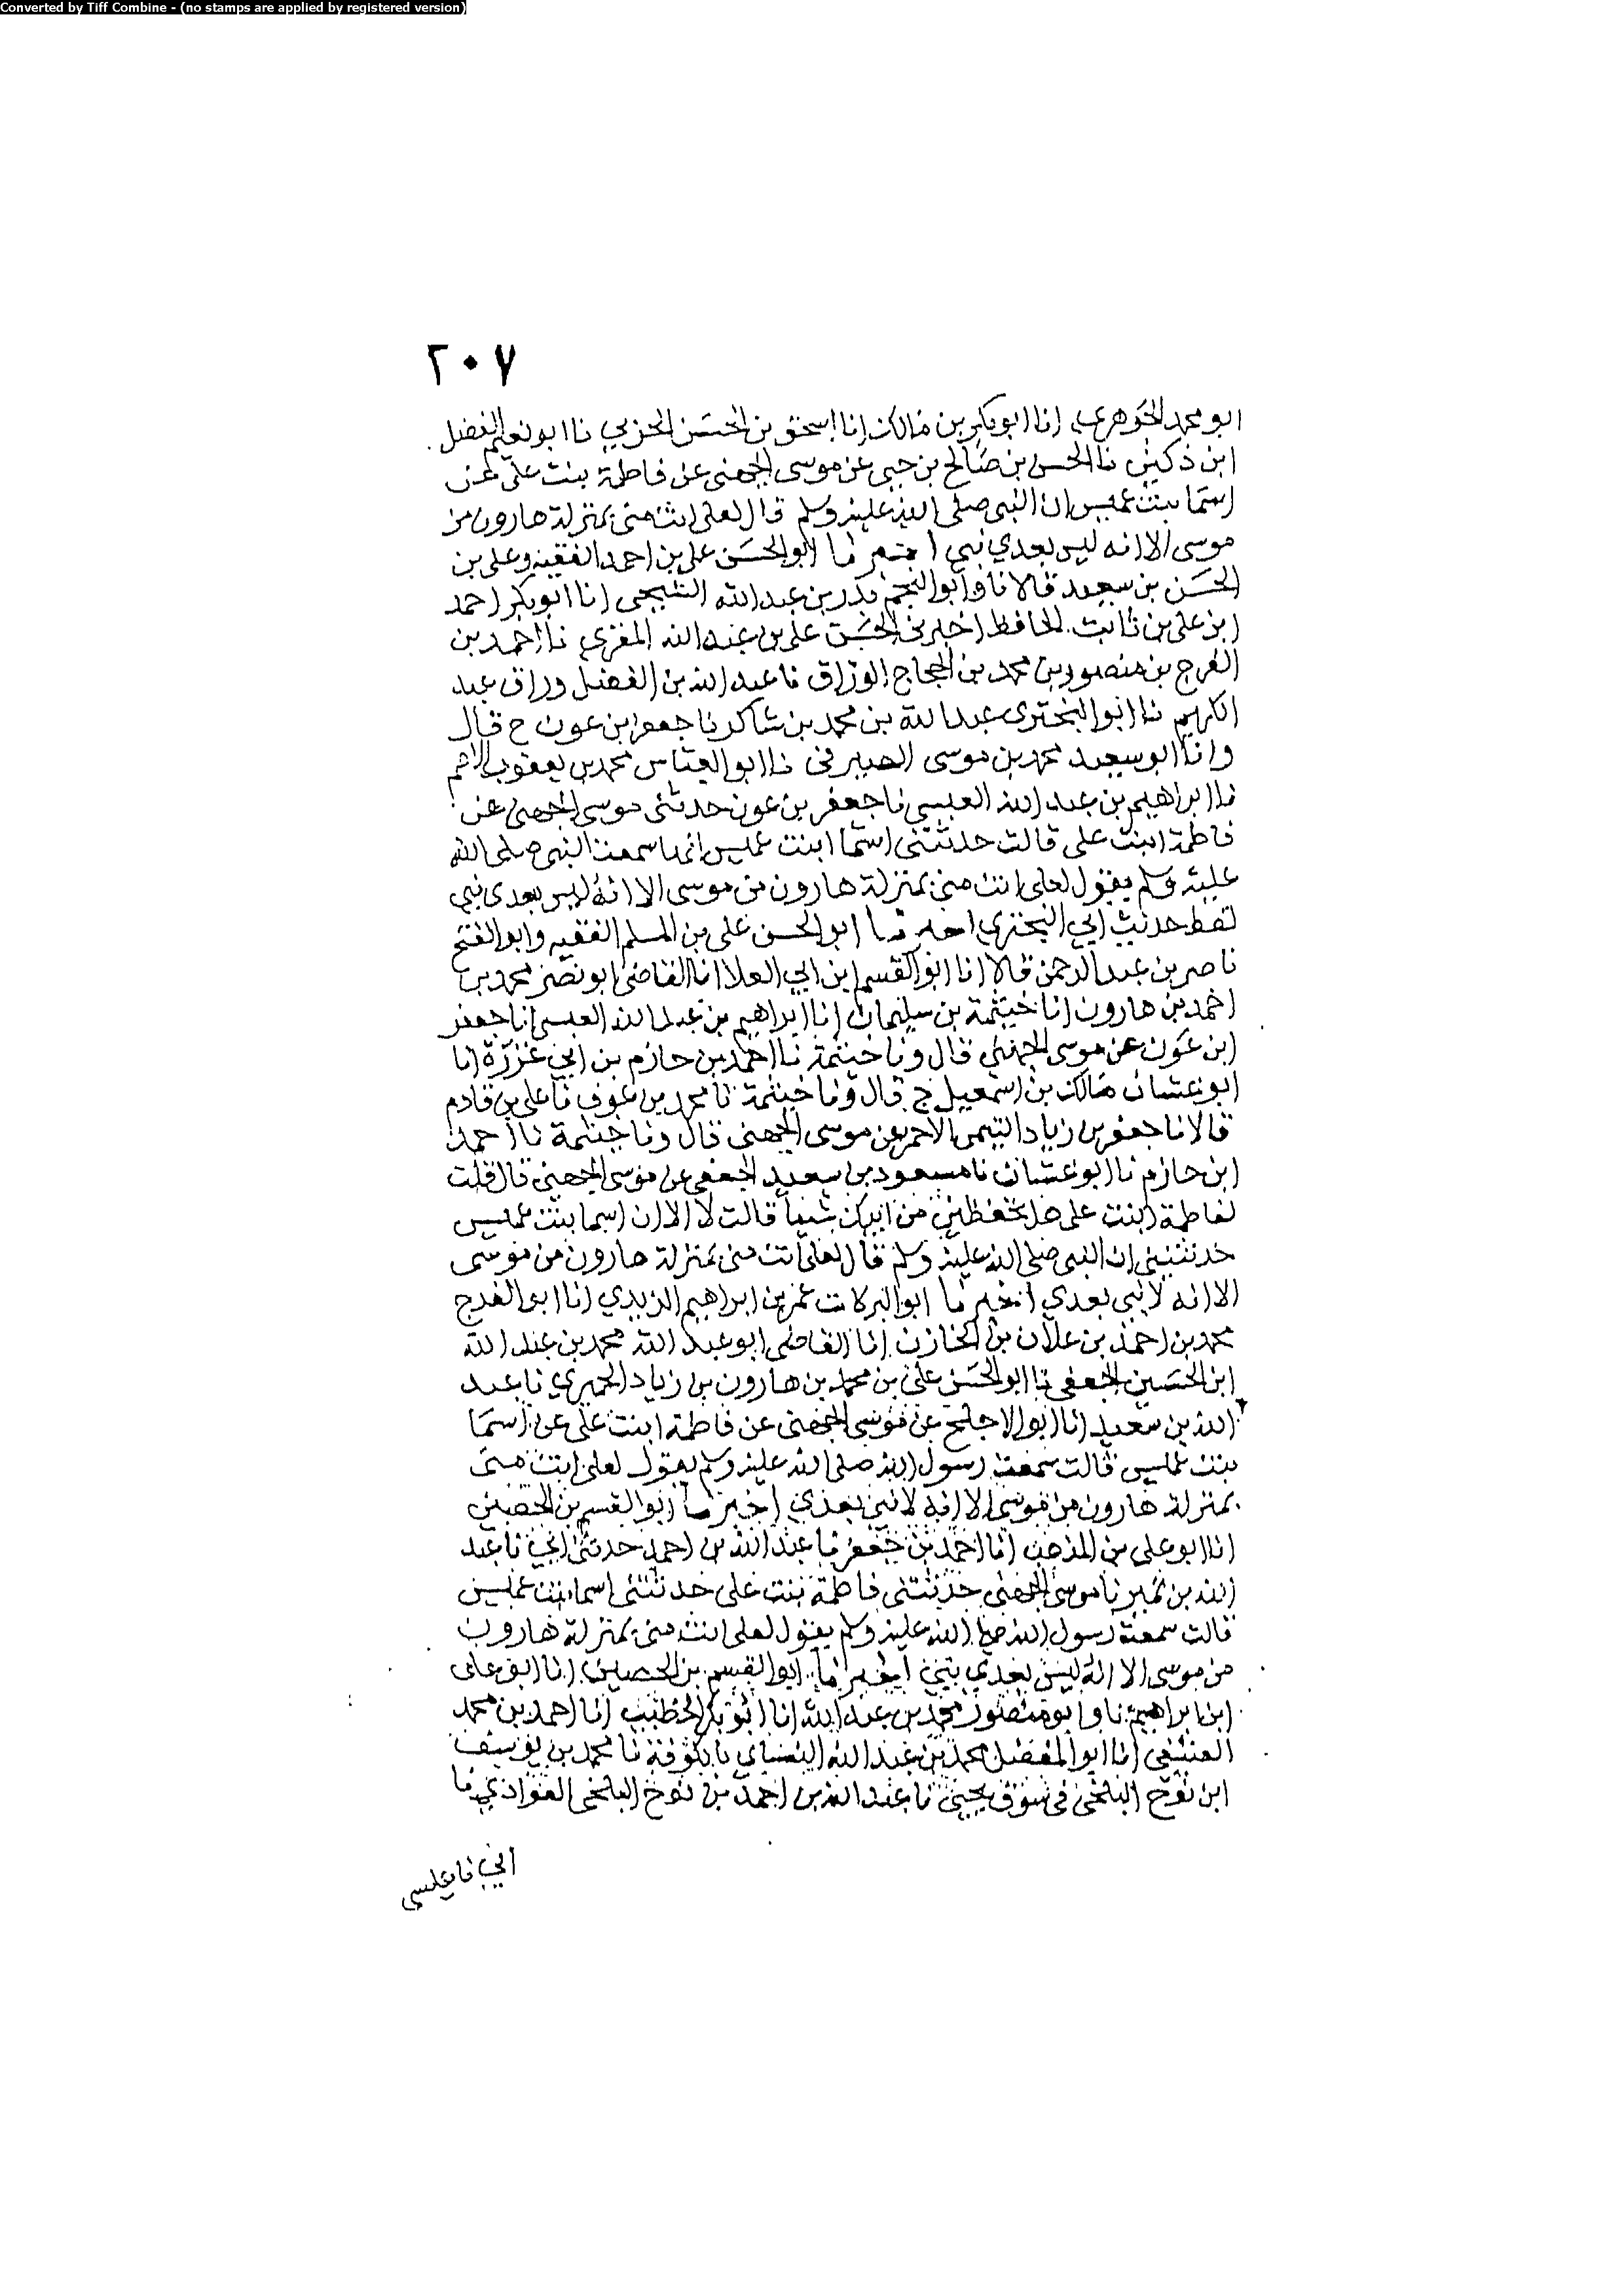 Converted by Tiff Combine - (no stamps are applied by registered version)
٢٠٧
ابو محمد الجوهري انا ابو بكر بن مالك انا اسحق بن الحسن الحربي نا ابو نعيم الفضل
ابن دكين نا الحسن بن صالح بن حيي عن موسى الجهني عن فاطمة بنت علي عن
اسما بنت عميس ان النبي صلى الله عليه وسلم قال لعلي انت مني بمنزلة هارون من
موسى الا انه ليس بعدي نبي اخبرنا ابو الحسن علي بن احمد الفقيه وعلي بن
الحسن بن سعيد قالا نا وابو النجم بدر بن عبد الله الشيحي انا ابو بكر احمد
ابن علي بن ثابت الحافظ اخبرني الحسن علي بن عبد الله المقري نا احمد بن
الفرج بن منصور بن محمد بن الحجاج الوراق نا عبد الله بن الفضل وراق عبد
الكريم نا ابو البختري عبد الله بن محمد بن شاكر نا جعفر بن عون ح قال
وانا ابو سعيد محمد بن موسى الصيرفي نا ابو العباس محمد بن يعقوب الاصم
نا ابراهيم بن عبد الله العبسي نا جعفر بن عون حدثني موسى الجهني عن
فاطمة ابنت علي قالت حدثتني اسما ابنت عميس انها سمعت النبي صلى الله
عليه وسلم يقول لعلي انت مني بمنزلة هارون من موسى الا انه ليس بعدي نبي
لفظ حديث ابي البختري اخبرنا ابو الحسن علي بن المسلم الفقيه وابو الفتح
ناصر بن عبد الرحمن قالا انا ابو القسم ابن ابي العلا انا القاضي ابو نصر محمد بن
احمد بن هارون انا خيثمة بن سليمان انا ابراهيم بن عبد الله العبسي انا جعفر
ابن عون عن موسى الجهني قال ونا خيثمة نا احمد بن حازم بن ابي غرزة انا
ابو غسان مالك بن اسمعيل ح قال ونا خيثمة نا محمد بن عوف نا علي بن قادم
قالا نا جعفر بن زياد التيمي الاحمر عن موسى الجهني قال ونا خيثمة نا احمد
ابن حازم نا ابو غسان نا مسعود بن سعيد الجعفي عن موسى الجهني قال قلت
لفاطمة ابنت علي هل تحفظين من ابيك شيا قالت لا الا ان اسما بنت عميس
حدثتني ان النبي صلى الله عليه وسلم قال لعلي انت مني بمنزلة هارون من موسى
الا انه لا نبي بعدي اخبرنا ابو البركات عمر بن ابراهيم الزيدي انا ابو الفرج
محمد بن احمد بن علان بن الخازن انا القاضي ابو عبد الله محمد بن عبد الله
ابن الحسين الجعفي نا ابو الحسن علي بن محمد بن هارون بن زياد الحميري نا عبد
الله بن سعيد انا ابو الاجلح عن موسى الجهني عن فاطمة ابنت علي عن اسما
بنت عميس قالت سمعت رسول الله صلى الله عليه وسلم يقول لعلي انت مني
بمنزلة هارون من موسى الا انه لا نبي بعدي اخبرنا ابو القسم بن الحصين
انا ابو علي بن المذهب انا احمد بن جعفر نا عبد الله بن احمد حدثني ابي نا عبد
الله بن نمير نا موسى الجهني حدثتني فاطمة بنت علي حدثتني اسما بنت عميس
قالت سمعت رسول الله صلى الله عليه وسلم يقول لعلي انت مني بمنزلة هارون
من موسى الا انه ليس بعدي نبي اخبرنا ابو القسم بن الحصين انا ابو علي
ابن ابراهيم نا وابو منصور محمد بن عبد الله انا ابو بكر الخطيب انا احمد بن محمد
العتيقي انا ابو المفضل محمد بن عبد الله الشيباني بالكوفة نا محمد بن يوسف
ابن نوح البلخي في سوق يحيى نا عبد الله بن احمد بن نوح البلخي القوادي نا
ابي نا عيسى